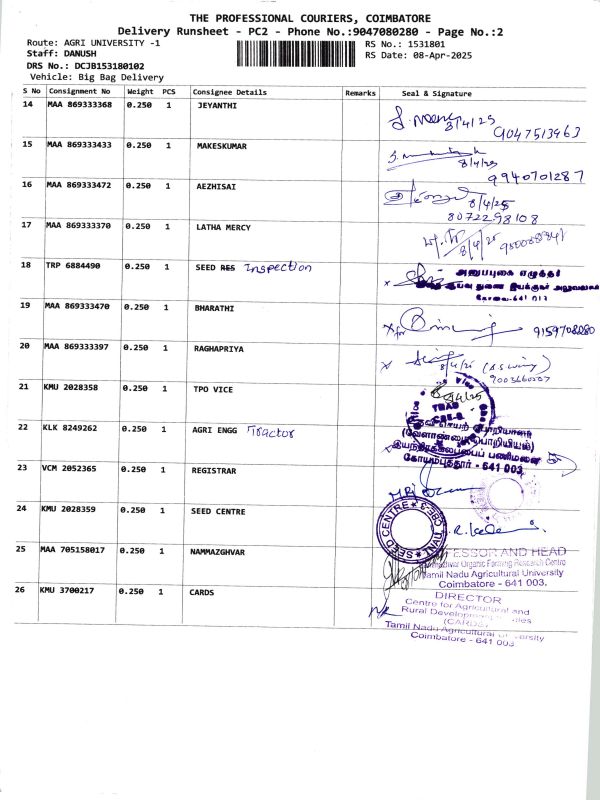 THE PROFESSIONAL COURIERS, COIMBATORE
Delivery Runsheet - PC2 - Phone No.:9047080280 - Page No.:2
Route: AGRI UNIVERSITY -1
RS No.: 1531801
Staff: DANUSH
RS Date: 08-Apr-2025
DRS No.: DCJB153180102
Vehicle: Big Bag Delivery
S No Consignment No Weight PCS Consignee Details Remarks Seal & Signature
14 MAA 869333368 0.250 1 JEYANTHI
8/4/25
9047513963
15 MAA 869333433 0.250 1 MAKESKUMAR
8/4/25
9940701287
16 MAA 869333472 0.250 1 AEZHISAI
8/4/25
8072298108
17 MAA 869333370 0.250 1 LATHA MERCY
8/4/25
18 TRP 6884490 0.250 1 SEED RES Inspection
அலுவலகம்
கோவை-641 013
19 MAA 869333470 0.250 1 BHARATHI
for
9159708280
20 MAA 869333397 0.250 1 RAGHAPRIYA
21 KMU 2028358 0.250 1 TPO VICE
8/4/25
TNAU
CBE-3
22 KLK 8249262 0.250 1 AGRI ENGG Tractor
(வேளாண்மை பொறியியல்)
கோயம்புத்தூர் - 641 003
23 VCM 2052365 0.250 1 REGISTRAR
24 KMU 2028359 0.250 1 SEED CENTRE
SEED CENTRE
TNAU, CBE-3
25 MAA 705158017 0.250 1 NAMMAZGHVAR
PROFESSOR AND HEAD
Organic Farming Research Centre
Tamil Nadu Agricultural University
Coimbatore - 641 003.
26 KMU 3700217 0.250 1 CARDS
DIRECTOR
Centre for Agricultural and
Rural Development
(CARDS)
Tamil Nadu Agricultural University
Coimbatore - 641 003